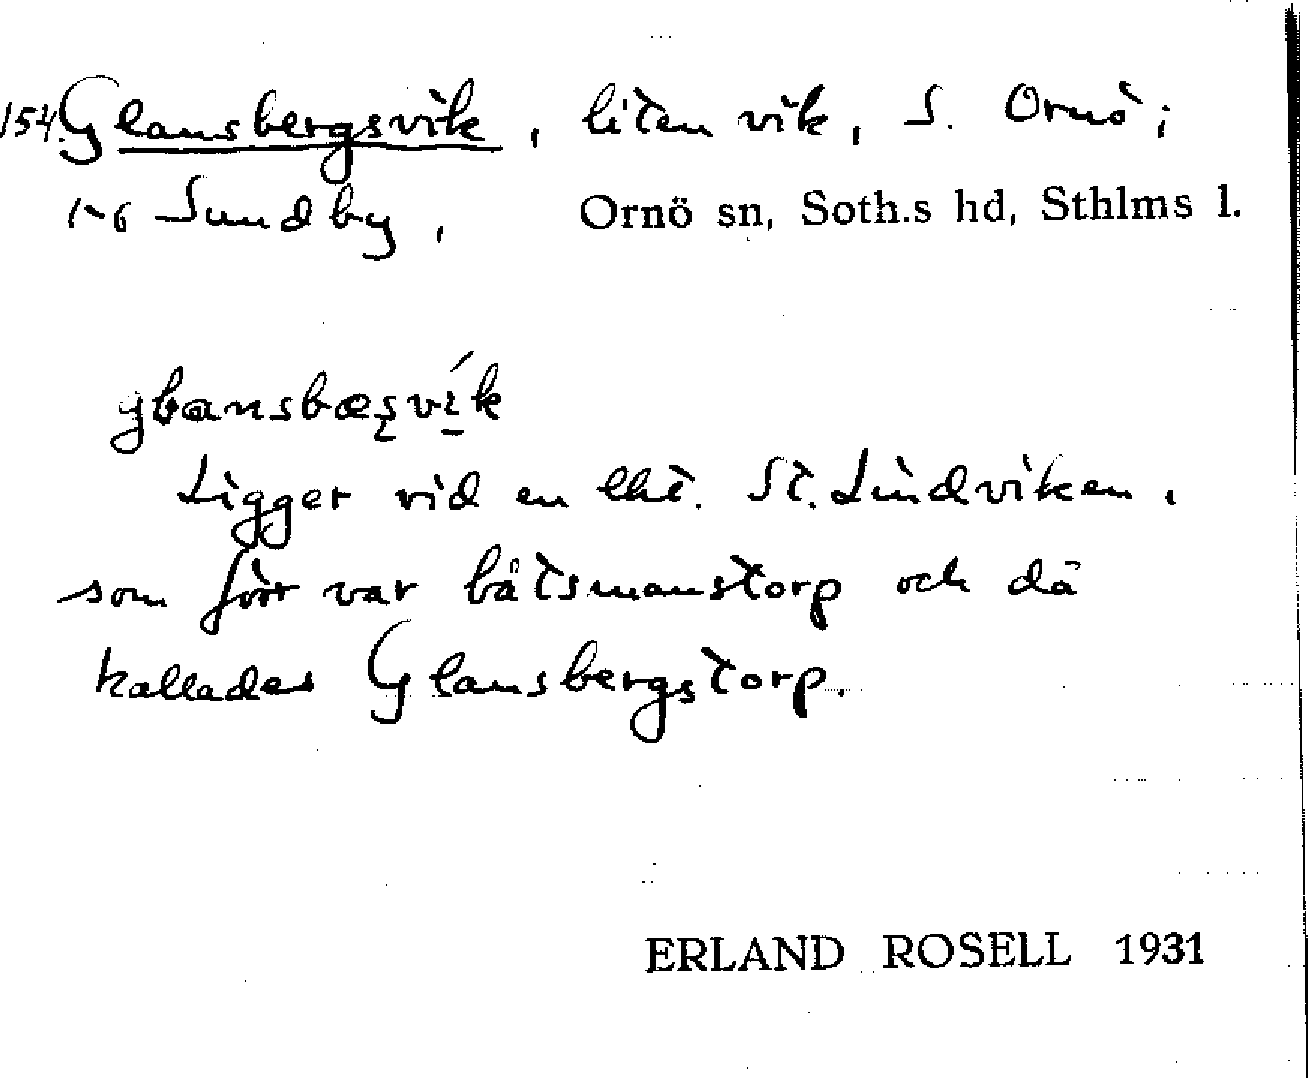 154. Glansbergsvik, liten vik, S. Ornö;
1-6 Sundby, Ornö sn, Soth.s hd, Sthlms l.
Ligger vid en lht. St. Lindviken,
som förr var båtsmanstorp och då
kallades Glansbergstorp.
ERLAND ROSELL 1931